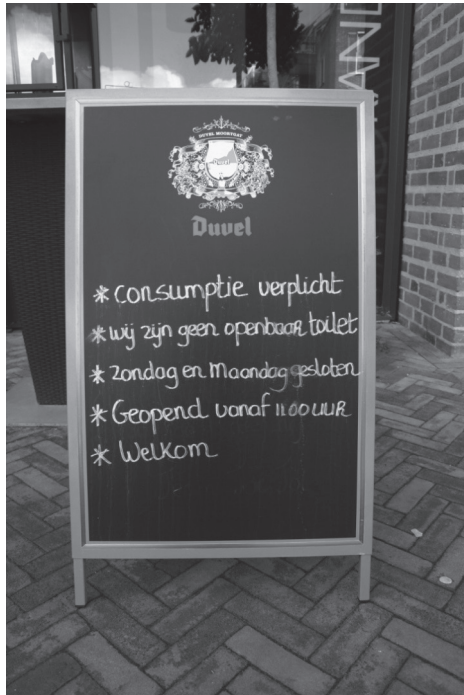 DUVEL MOORTGAT
Duvel
* consumptie verplicht
* wij zijn geen openbaar toilet
* zondag en maandag gesloten
* Geopend vanaf 11.00 UUR
* Welkom